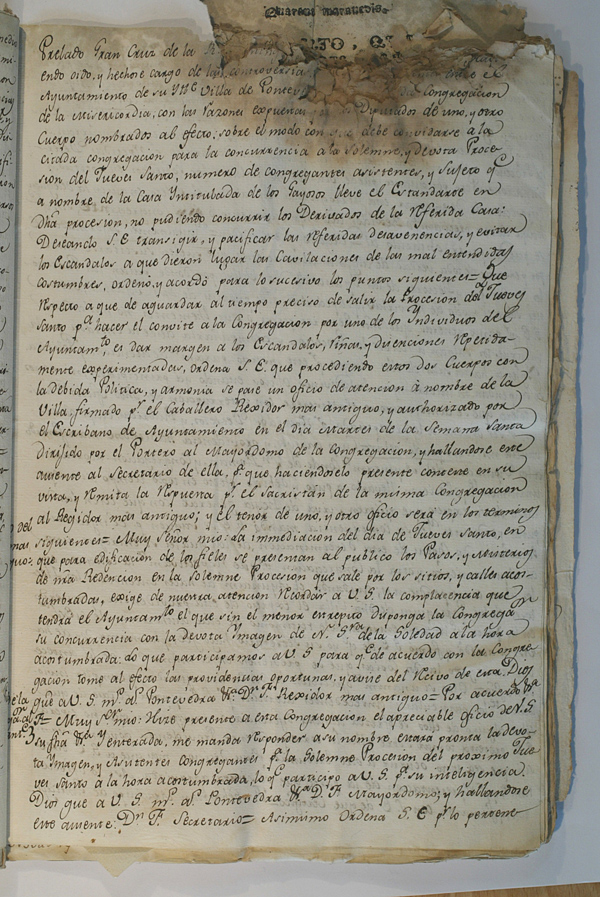 Quarenta maravedis.
Prelado Gran Cruz de la
endo oido, y hechose cargo de las controversias entre el
Ayuntamiento de su M.ᴺ Villa de Pontev Congregacion
de la Misericordia, con las razones expuestas Diputados de uno, y otro
Cuerpo nombrados al efecto, sobre el modo con que debe convidarse a la
citada congregacion para la concurrencia a la Solemne, y devota Proce-
sion del Jueves Santo, numero de congregantes asistentes, y sujeto q.ᵉ
a nombre de la Casa Yntitulada de los Gayosos lleve el Estandarte en
dha procesion, no pudiendo concurrir los Derivados de la referida Casa:
Deseando S. E. transigir, y pacificar las referidas desavenencias, y evitar
los Escandalos a que dieron lugar las Cavilaciones de las mal entendidas
costumbres, ordenò, y acordò para lo sucesivo los puntos siguientes = Que
respecto a que de aguardar al tiempo preciso de salir la Procesion del Jueves
Santo p.ᵃ hacer el convite a la Congregacion por uno de los Yndividuos del
Ayuntam.ᵗᵒ es dar margen a los Escandalos, riñas, y disenciones repetida-
mente experimentadas, ordena S. E. que procediendo estos dos Cuerpos con
la debida Politica, y armonia se pase un oficio de atencion à nombre de la
Villa, firmado p.ʳ el Caballero Rexidor mas antiguo, y authorizado por
el Escribano de Ayuntamiento en el dia Martes de la Semana Santa
dirijido por el Portero al Mayordomo de la Congregacion, y hallandose este
ausente al Secretario de ella, p.ᵃ que haciendoselo presente conteste en su
vista, y remita la respuesta p.ʳ el Sacristan de la misma Congregacion
al Regidor mas antiguo; y el tenor de uno, y otro oficio sera en los terminos
siguientes = Muy Señor mio: La inmediacion del dia de Jueves Santo, en
que para edificacion de los fieles se presentan al publico los Pasos, y Misterios
de nra Redencion en la Solemne Procesion que sale por los sitios, y calles acos-
tumbradas, exige de nuestra atencion recordar a V. S. la complacencia que
tendrà el Ayuntam.ᵗᵒ el que sin el menor estrepito disponga la Congregacⁿ
su concurrencia con la devota Ymagen de N. S.ʳᵃ de la Soledad a la hora
acostumbrada: lo que participamos a V. S. para q.ᵉ de acuerdo con la Congre-
gacion tome al efecto las providencias oportunas, y avise del recivo de esta. Dios
gue a V. S. m.ˢ a.ˢ Pontevedra &.ᵃ D.ⁿ F. Rexidor mas antiguo = Por acuerdo &.ᵃ
F. = Muy S.ᵒʳ mio: Hize presente a esta Congregacion el apreciable oficio de V. S.
su fha &.ᵃ y enterada, me manda responder a su nombre estarà pronta la devo-
ta Ymagen, y Asistentes Congregantes p.ᵃ la Solemne Procesion del proximo Jue
ves Santo à la hora acostumbrada, lo q.ᵉ participo a V. S. p.ᵃ su inteligencia.
Dios gue a V. S. m.ˢ a.ˢ Pontevedra &.ᵃ D. F. Mayordomo; y hallandose
este ausente: D.ⁿ F. Secretario = Asimismo Ordena S. E. p.ʳ lo pertene-